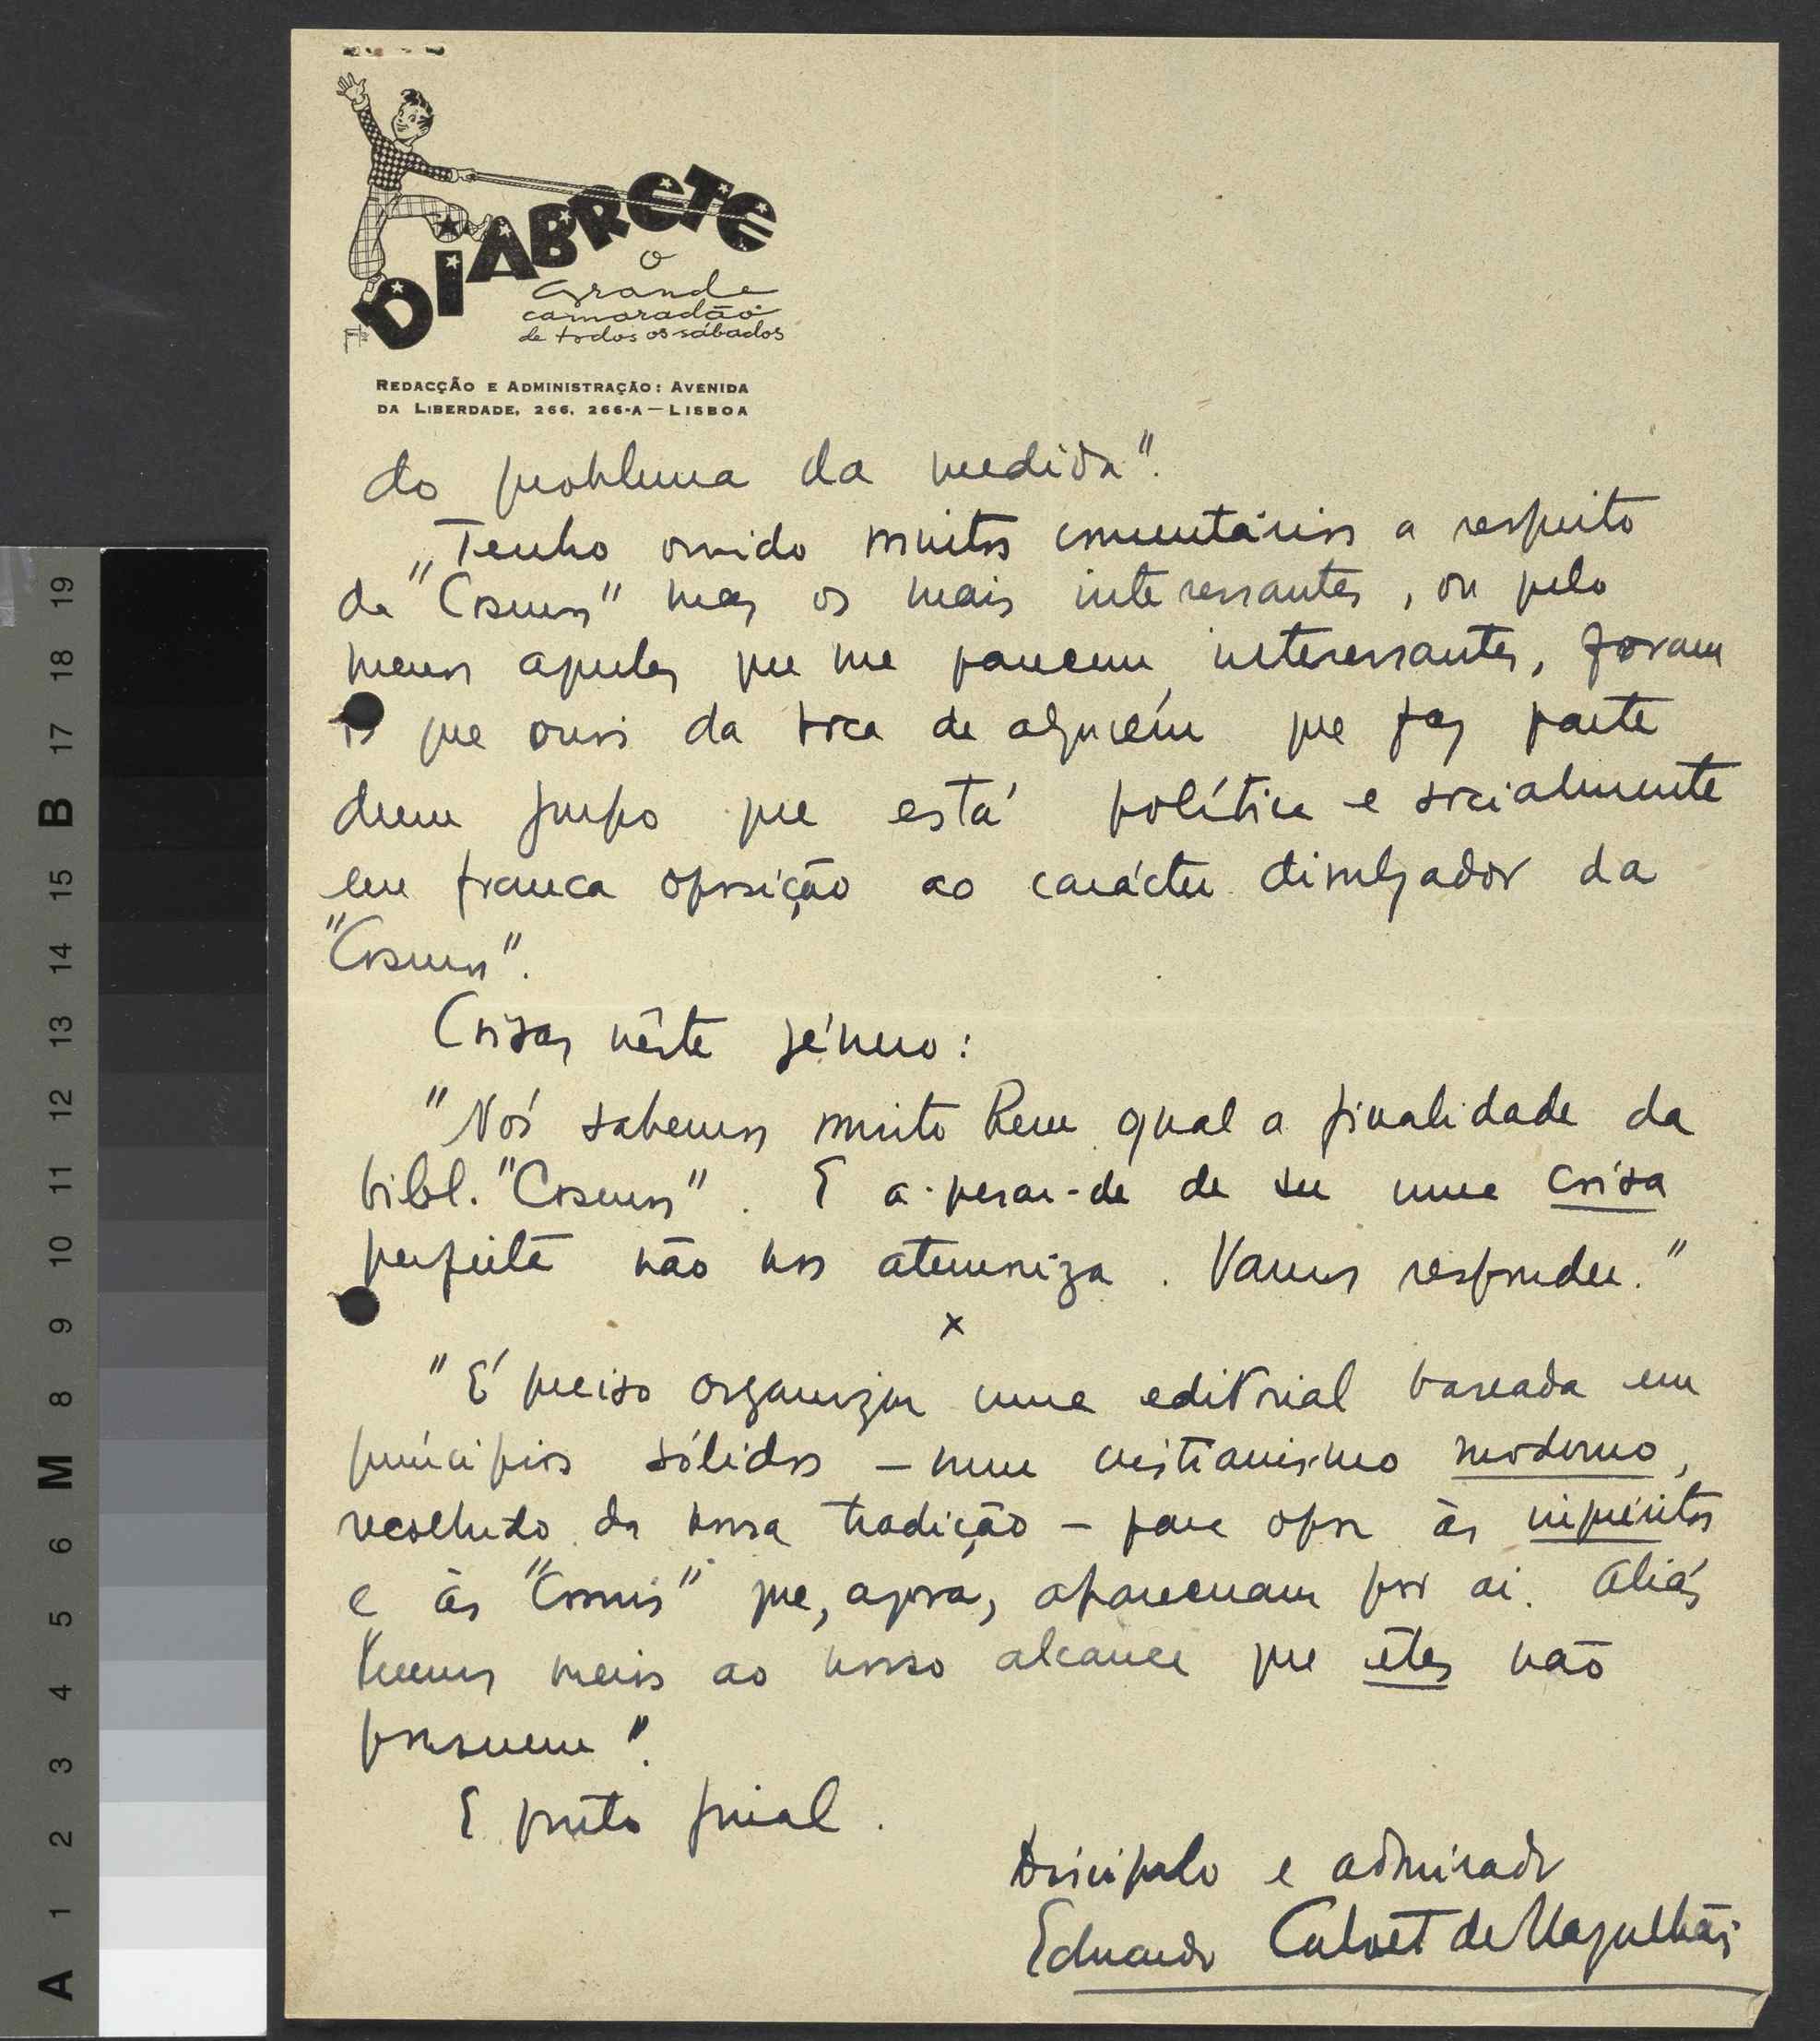 DIABRETE
o
grande
camaradão
de todos os sábados
REDACÇÃO E ADMINISTRAÇÃO: AVENIDA
DA LIBERDADE, 266, 266-A — LISBOA
do problema da medida".
"Tenho ouvido muitos comentários a respeito
da "Cosmos" mas os mais interessantes, ou pelo
menos aqueles que me parecem interessantes, foram
os que ouvi da boca de alguém que faz parte
dum grupo que está política e socialmente
em franca oposição ao carácter divulgador da
"Cosmos".
Coisas nêste género:
"Nós sabemos muito bem qual a finalidade da
bibl. "Cosmos". E a-pesar-de de ser uma coisa
perfeita não nos atemoriza. Vamos responder."
x
"É preciso organizar uma editorial baseada em
princípios sólidos — num cristianismo moderno,
recolhido da nossa tradição — para opor às
e às "Cosmos" que, agora, apareceram por aí. Aliás
temos meios ao nosso alcance que êles não
possuem".
E ponto final.
Discípulo e admirador
Eduardo Calvet de Magalhãis
19
18
17
B
15
14
13
12
11
10
9
8
M
6
5
4
3
2
1
A